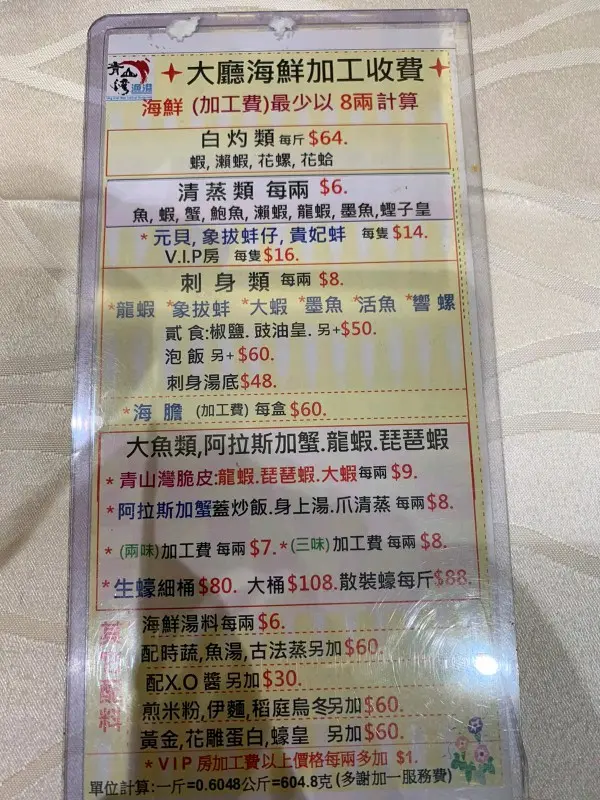 青山灣
漁港
大廳海鮮加工收費
海鮮 (加工費)最少以 8兩計算
白灼類 每斤 $64.
蝦, 瀨蝦, 花螺, 花蛤
清蒸類 每兩 $6.
魚, 蝦, 蟹, 鮑魚, 瀨蝦, 龍蝦, 墨魚,蟶子皇
*元貝, 象拔蚌仔, 貴妃蚌 每隻 $14.
V.I.P房 每隻 $16.
刺身類 每兩 $8.
*龍蝦 *象拔蚌 *大蝦 *墨魚 *活魚 *響螺
貳食:椒鹽. 豉油皇. 另+$50.
泡飯 另+ $60.
刺身湯底$48.
*海膽 (加工費) 每盒 $60.
大魚類,阿拉斯加蟹.龍蝦.琵琶蝦
*青山灣脆皮:龍蝦.琵琶蝦.大蝦每兩 $9.
*阿拉斯加蟹蓋炒飯.身上湯.爪清蒸 每兩$8.
*(兩味)加工費 每兩 $7.*(三味)加工費 每兩 $8.
*生蠔細桶$80. 大桶$108.散裝蠔每斤$88.
配料
海鮮湯料每兩 $6.
配時蔬,魚湯,古法蒸另加$60.
配X.O 醬 另加$30.
煎米粉,伊麵,稻庭烏冬另加$60.
黃金,花雕蛋白,蠔皇 另加$50.
*VIP 房加工費以上價格每兩多加 $1.
單位計算:一斤=0.6048公斤=604.8克(多謝加一服務費)